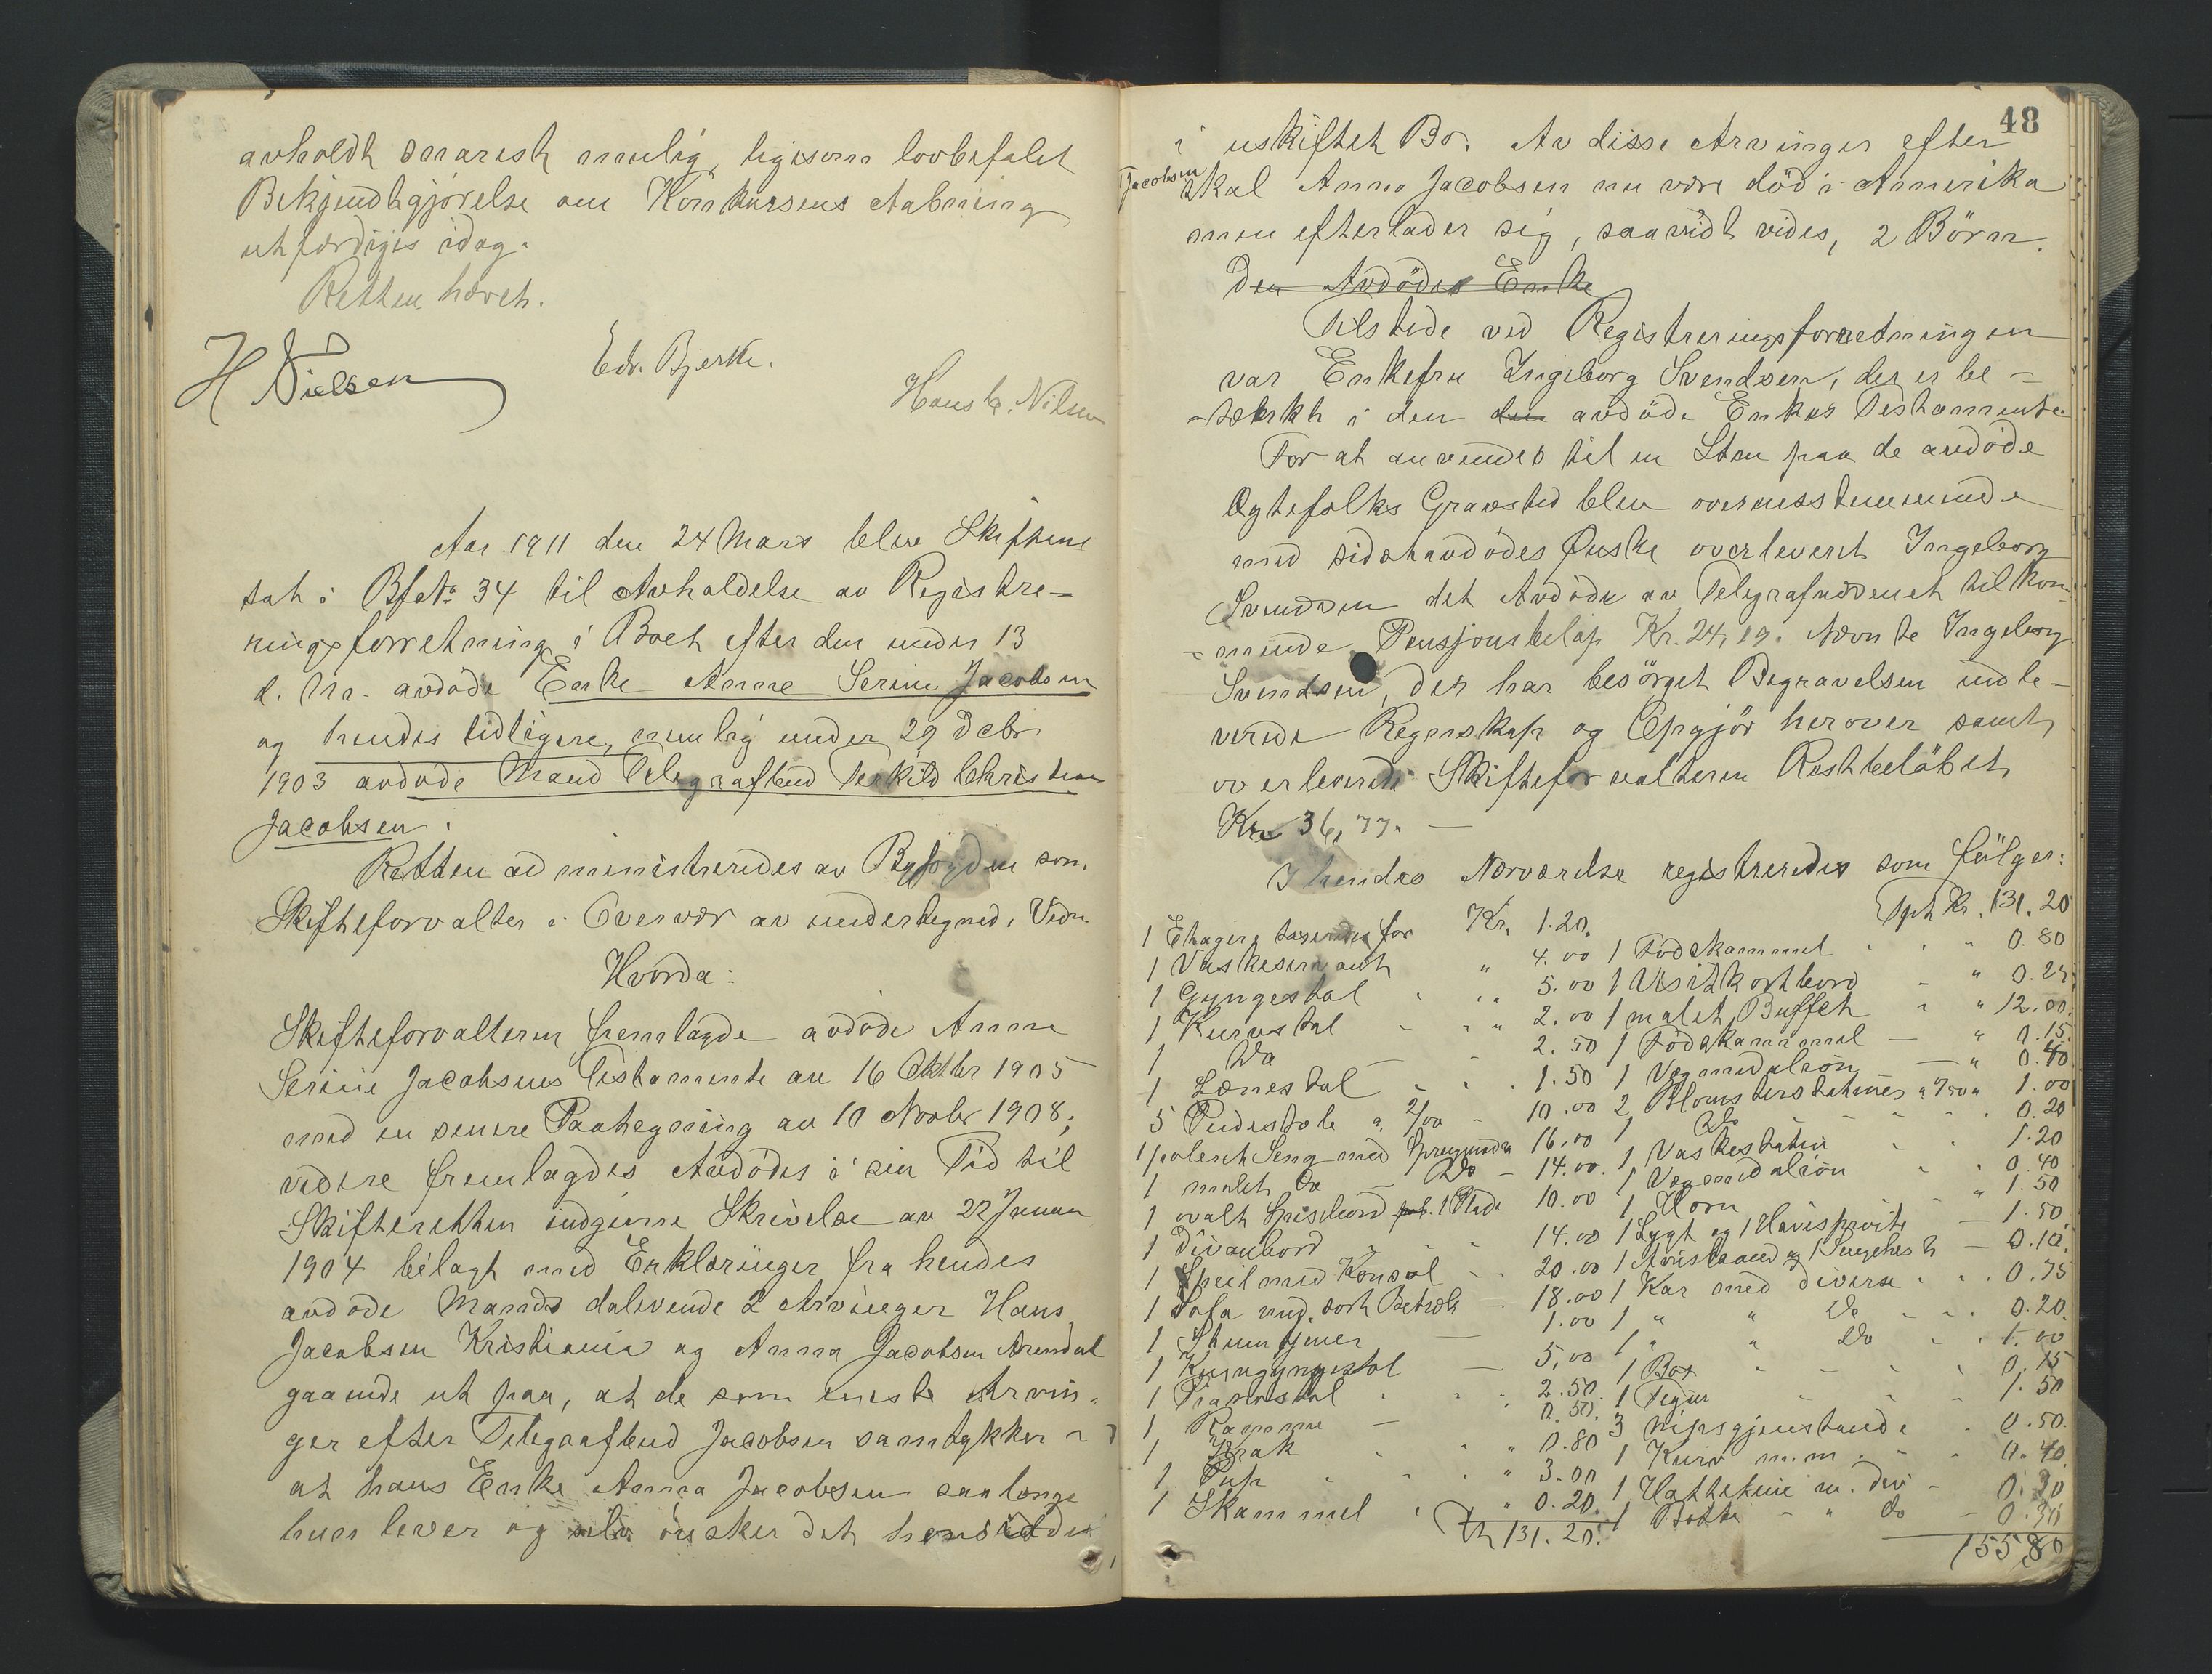 avholdt snarest mulig, ligesom lovbefalet
Bekjendtgjörelse om Konkursens Aabning
utfærdiges idag.
Retten hævet.
H Nielsen
Edv. Bjerke.
Hans C. Nilsen
Aar 1911 den 24 Mars blev Skifteret
sat i Bf No 34 til Avholdelse av Registre-
ringsforretning i Boet efter den under 13
d. M. avdöde Enke Anne Serine Jacobsen
og hendes tidligere, nemlig under 29 Decbr
1903 avdöde Mand Telegrafbud Terkild Christian
Jacobsen.
Retten administreredes av Byfogden som
Skifteforvalter i Overvær av undertegnede Vidner
Hvorda:
Skifteforvalteren fremlagde avdöde Anne
Serine Jacobsens Testamente av 16 Oktbr 1905
med en senere Paategning av 10 Novbr 1908;
videre fremlagdes Avdödes i sin Tid til
Skifteretten indgivne Skrivelse av 22 Januar
1904 bilagt med Erklæringer fra hendes
avdöde Mands dalevende 2 Arvinger Hans
Jacobsen Kristiania og Anna Jacobsen Arendal
gaaende ut paa, at de som eneste Arvin-
ger efter Telegrafbud Jacobsen samtykker i
at hans Enke Anna Jacobsen saalænge
hun lever og selv önsker det hensidder
48
i uskiftet Bo. Av disse Arvinger efter
Jacobsen
skal Anna Jacobsen nu være död i Amerika
men efterlader sig, saavidt vides, 2 Börn.
Den Avdödes Enke
Tilstede ved Registreringsforretningen
var Enkefru Ingeborg Svendsen, der er be-
-tænkt i den den avdöde Enkes Testamente
For at anvendes til en Sten paa de avdöde
Egtefolks Gravsted blev overensstemmende
med sidstavdödes Önske overlevert Ingeborg
Svendsen det Avdöde av Telegrafvæsenet tilkom-
-mende Pensjonsbelöp Kr. 24,19. Nævnte Ingeborg
Svendsen, der har besörget Begravelsen indle-
verede Regnskap og Opgjör herover samt
overleverede Skifteforvalteren Restbelöbet
Kr 36,77. —
I hendes Nærværelse registreredes som fölger:
Tpt Kr. 131.20
1 Etagere taxeredes for Kr. 1.20.
1 Vaskeservant " 4.00
1 Gyngestol " 5.00
1 Kurvstol " 2.00
1 Do — 2.50
1 Lænestol " 1.50
5 Pindestole a 2/00 - 10.00
1 poleret Seng med Springmadr 16.00
1 malet Do — Do — 14.00.
1 ovalt Spisebord 1 Plade 10.00
1 Divanbord 14.00
1 Speil med Konsol 20.00
1 Sofa med sort Betræk — 18.00
1 Stumtjener — 1.00
1 Kurvgyngestol — 5.00
1 Pianostol 2.50.
1 Ramme — 0.50.
1 Krak " 0.80
1 Puf " 3.00
1 Skammel " 0.20.
Tr 131.20.
1 Fodskammel " 0.80
1 Visitkortbord " 0.25
1 malet Buffet " 12.00
1 Fodskammel — " 0.15
1 Vægmedalion — " 0.40
2 Blomsterstativer 1.00
1 Do 0.20
1 Vaskestativ 1.20
1 Vægmedalion 0.40
1 Horn " 1.50
1 Lygt og 1 Havesproite — 1.50
1 Avisbaand og 1 Gyngehest — 0.10.
1 Kar med diverse 0.75
1 " " Do 0.20
1 " " Do 1.00
1 Box 0.15
1 Figur 1.50
3 Nipsgjenstande 0.50.
1 Kurv m.m. 0.40
1 Hatteteine m. div - 0.30
1 Bøtte " do — 0.30
155,80